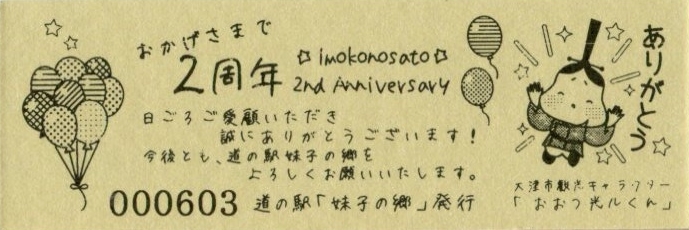 おかげさまで
2周年
☆ imokonosato ☆
2nd Anniversary
日ごろご愛顧いただき
誠にありがとうございます!
今後とも、道の駅妹子の郷を
よろしくお願いいたします。
000603 道の駅「妹子の郷」発行
ありがとう
大津市観光キャラクター
「おおつ光ルくん」